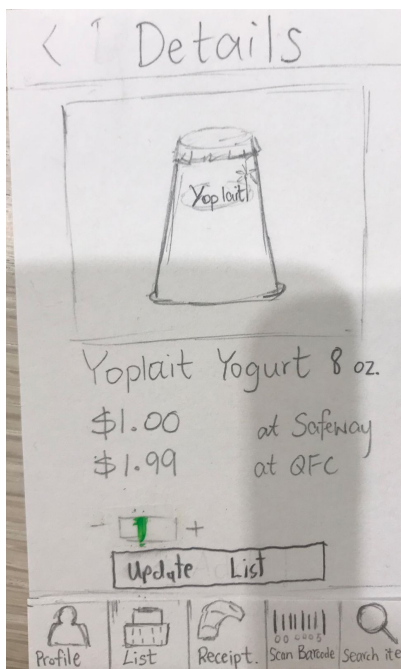 < Details
Yoplait
Yoplait Yogurt 8 oz.
$1.00 at Safeway
$1.99 at QFC
- 1 +
Update List
Profile List Receipt. Scan Barcode Search ite